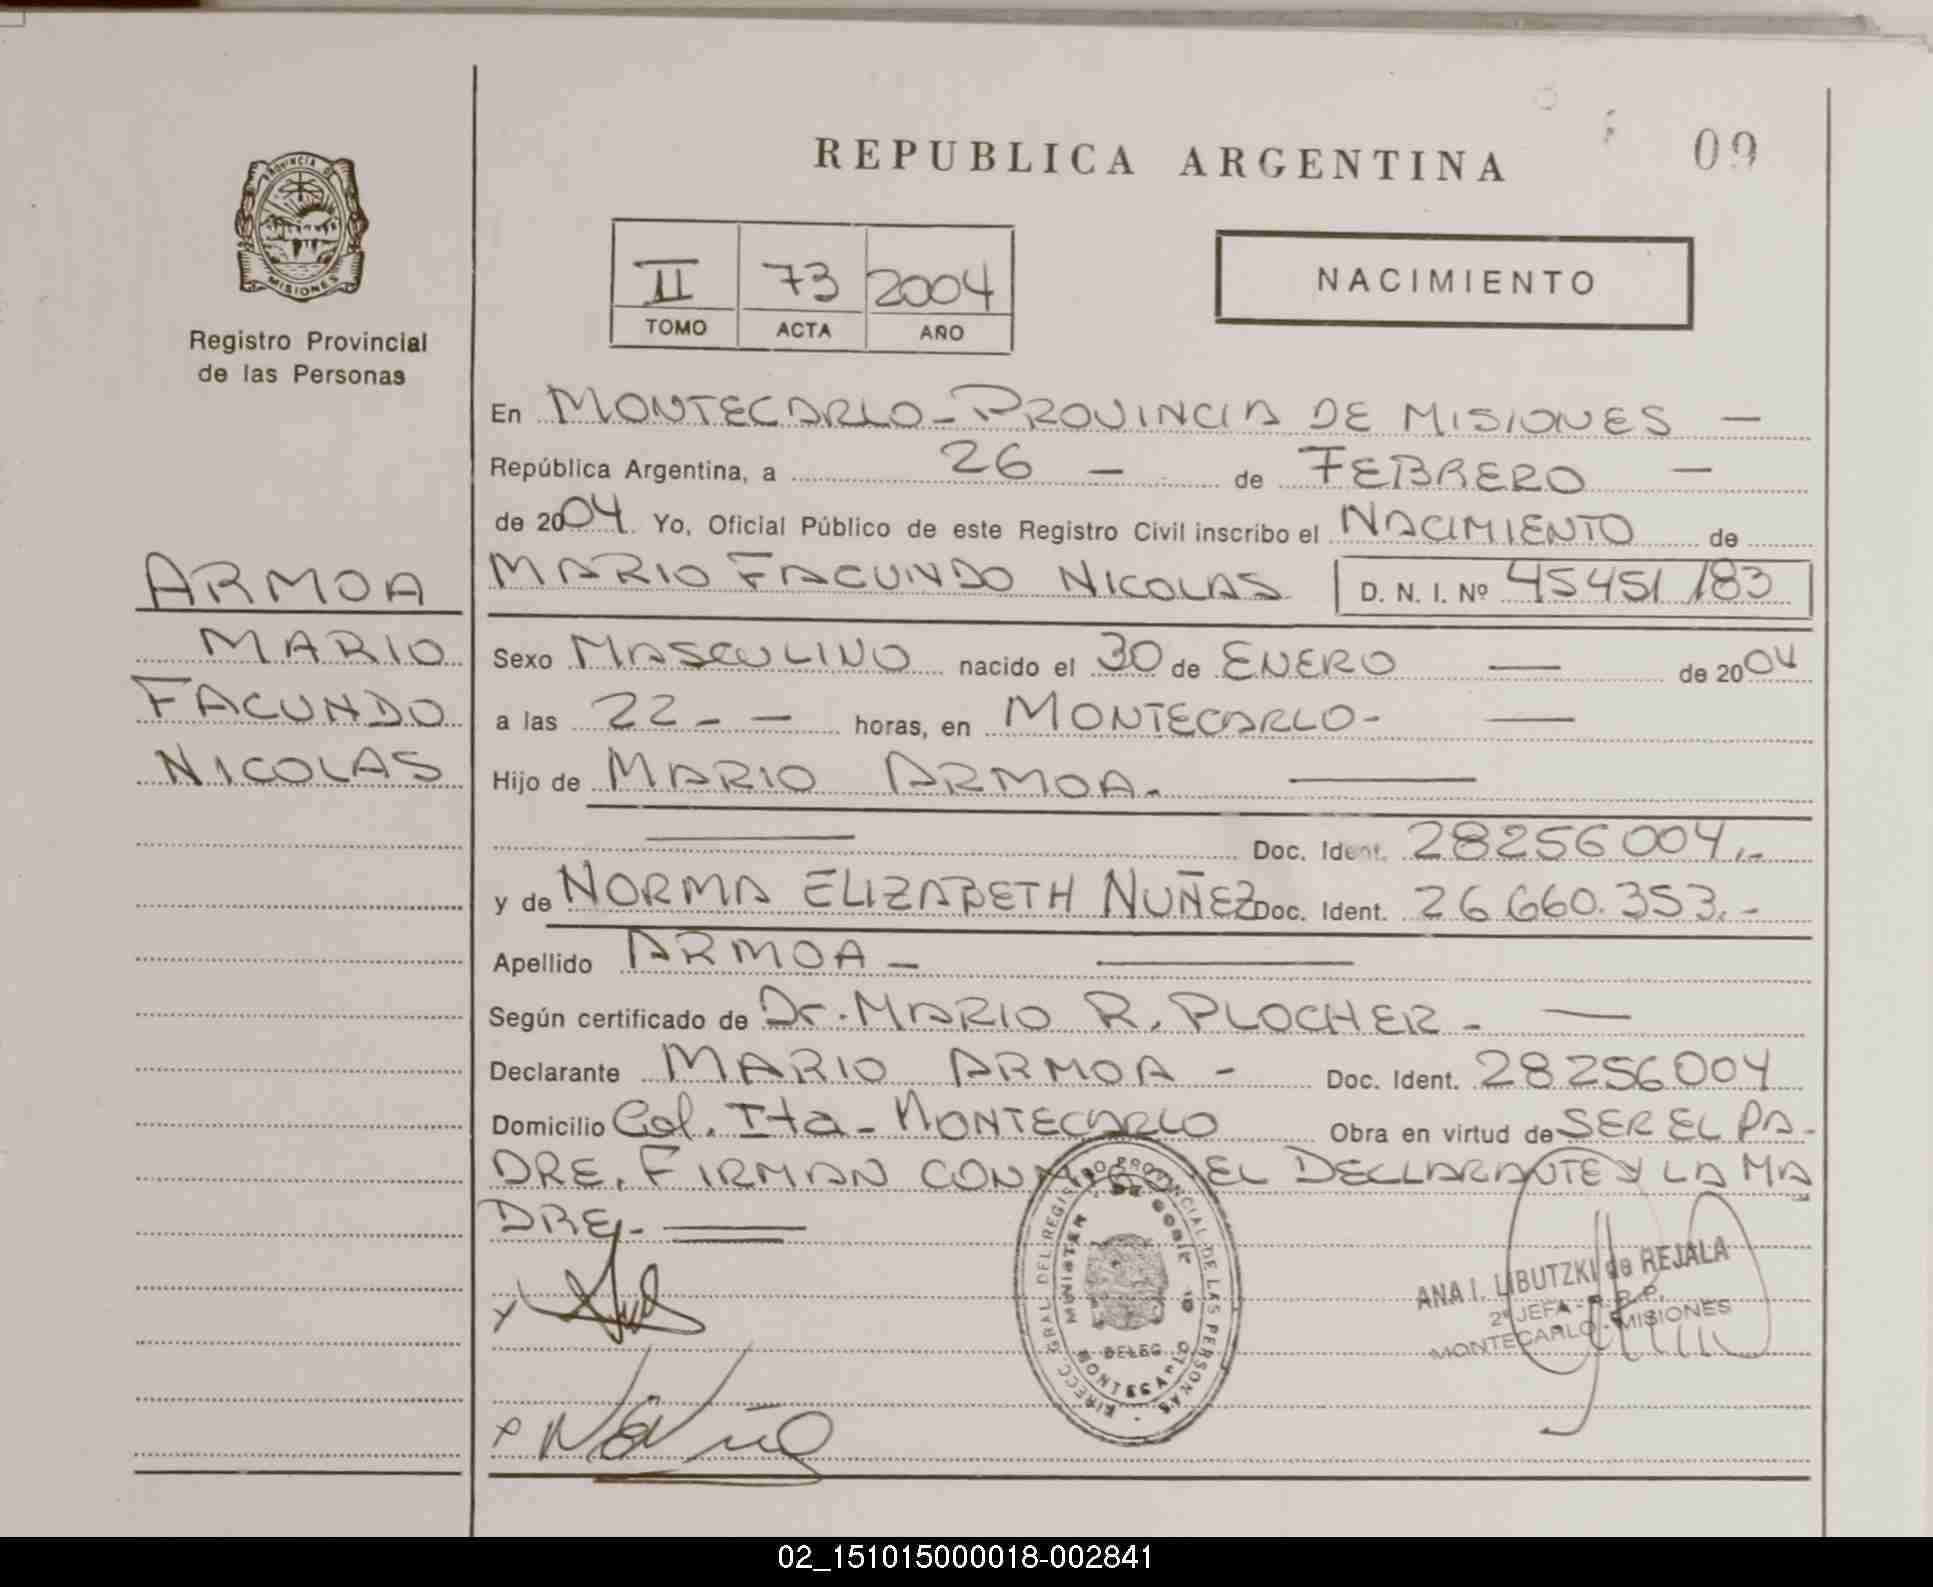 REPUBLICA ARGENTINA
09
PROVINCIA DE
MISIONES
Registro Provincial
de las Personas
II 73 2004
TOMO ACTA AÑO
NACIMIENTO
En MONTECARLO - PROVINCIA DE MISIONES —
República Argentina, a 26 — de FEBRERO —
de 2004 Yo, Oficial Público de este Registro Civil inscribo el NACIMIENTO de
ARMOA
MARIO FACUNDO NICOLAS D. N. I. Nº 45451183
MARIO
Sexo MASCULINO nacido el 30 de ENERO — de 2004
FACUNDO
a las 22 - — horas, en MONTECARLO - —
NICOLAS
Hijo de MARIO ARMOA. —
— Doc. Ident. 28256004.-
y de NORMA ELIZABETH NUÑEZ Doc. Ident. 26660.353.-
Apellido ARMOA - —
Según certificado de Dr. MARIO R. PLOCHER - —
Declarante MARIO ARMOA - Doc. Ident. 28256004
Domicilio Col. Ita - MONTECARLO Obra en virtud de SER EL PA-
DRE. FIRMAN CONMIGO EL DECLARANTE Y LA MA
DRE. —
DIRECC GRAL DEL REGISTRO PROVINCIAL DE LAS PERSONAS
DELEG
MONTECARLO
ANA I. LIBUTZKI de REJALA
2ª JEFA - R.P.
MONTECARLO - MISIONES
02_151015000018-002841